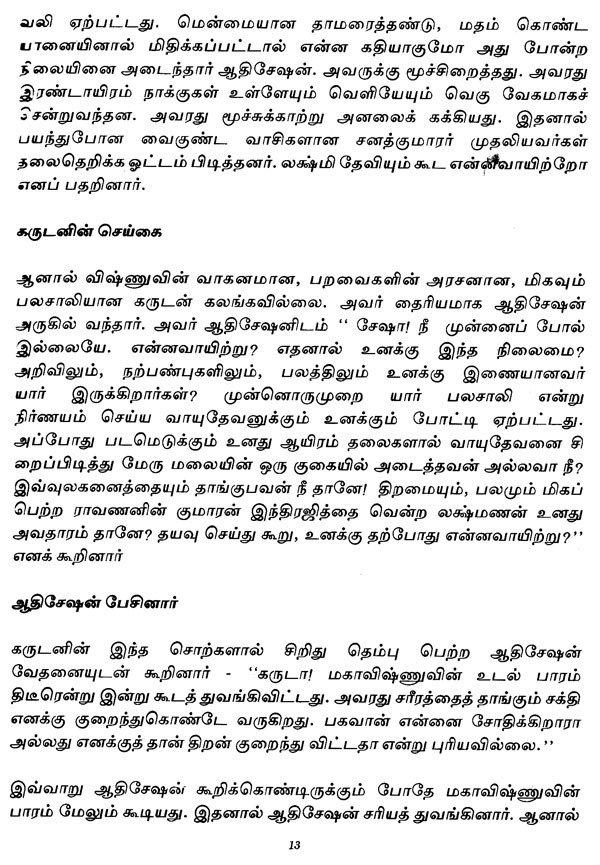 வலி ஏற்பட்டது. மென்மையான தாமரைத்தண்டு, மதம் கொண்ட
யானையினால் மிதிக்கப்பட்டால் என்ன கதியாகுமோ அது போன்ற
நிலையினை அடைந்தார் ஆதிசேஷன். அவருக்கு மூச்சிறைத்தது. அவரது
இரண்டாயிரம் நாக்குகள் உள்ளேயும் வெளியேயும் வெகு வேகமாகச்
சென்றுவந்தன. அவரது மூச்சுக்காற்று அனலைக் கக்கியது. இதனால்
பயந்துபோன வைகுண்ட வாசிகளான சனத்குமாரர் முதலியவர்கள்
தலைதெறிக்க ஓட்டம் பிடித்தனர். லக்ஷ்மி தேவியும் கூட என்னவாயிற்றோ
எனப் பதறினார்.
கருடனின் செய்கை
ஆனால் விஷ்ணுவின் வாகனமான, பறவைகளின் அரசனான, மிகவும்
பலசாலியான கருடன் கலங்கவில்லை. அவர் தைரியமாக ஆதிசேஷன்
அருகில் வந்தார். அவர் ஆதிசேஷனிடம் ‘‘ சேஷா! நீ முன்னைப் போல்
இல்லையே. என்னவாயிற்று? எதனால் உனக்கு இந்த நிலைமை?
அறிவிலும், நற்பண்புகளிலும், பலத்திலும் உனக்கு இணையானவர்
யார் இருக்கிறார்கள்? முன்னொருமுறை யார் பலசாலி என்று
நிர்ணயம் செய்ய வாயுதேவனுக்கும் உனக்கும் போட்டி ஏற்பட்டது.
அப்போது படமெடுக்கும் உனது ஆயிரம் தலைகளால் வாயுதேவனை சி
றைப்பிடித்து மேரு மலையின் ஒரு குகையில் அடைத்தவன் அல்லவா நீ?
இவ்வுலகனைத்தையும் தாங்குபவன் நீ தானே! திறமையும், பலமும் மிகப்
பெற்ற ராவணனின் குமாரன் இந்திரஜித்தை வென்ற லக்ஷ்மணன் உனது
அவதாரம் தானே? தயவு செய்து கூறு, உனக்கு தற்போது என்னவாயிற்று?’’
எனக் கூறினார்
ஆதிசேஷன் பேசினார்
கருடனின் இந்த சொற்களால் சிறிது தெம்பு பெற்ற ஆதிசேஷன்
வேதனையுடன் கூறினார் - ‘‘கருடா! மகாவிஷ்ணுவின் உடல் பாரம்
திடீரென்று இன்று கூடத் துவங்கிவிட்டது. அவரது சரீரத்தைத் தாங்கும் சக்தி
எனக்கு குறைந்துகொண்டே வருகிறது. பகவான் என்னை சோதிக்கிறாரா
அல்லது எனக்குத் தான் திறன் குறைந்து விட்டதா என்று புரியவில்லை.’’
இவ்வாறு ஆதிசேஷன் கூறிக்கொண்டிருக்கும் போதே மகாவிஷ்ணுவின்
பாரம் மேலும் கூடியது. இதனால் ஆதிசேஷன் சரியத் துவங்கினார். ஆனால்
13